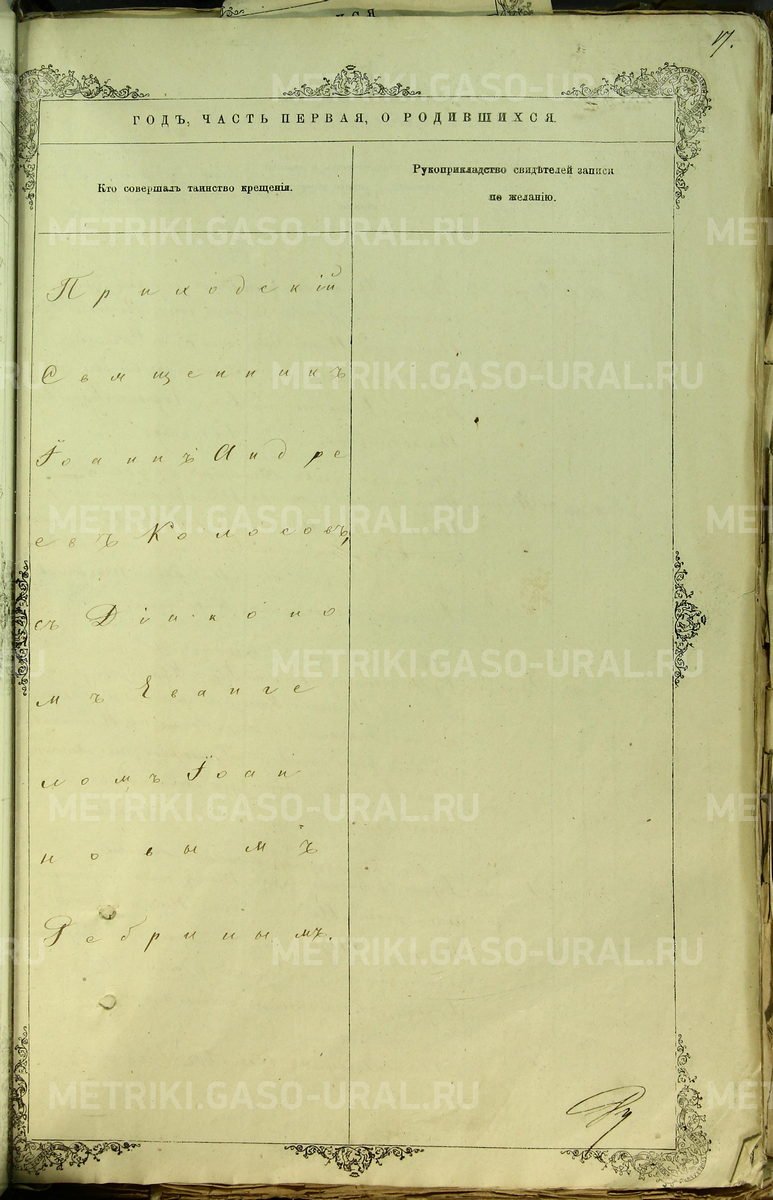 17.
ГОДЪ, ЧАСТЬ ПЕРВАЯ, О РОДИВШИХСЯ.
Кто совершалъ таинство крещенія.
Рукоприкладство свидѣтелей записи
по желанію.
Приходскій
Священникъ
Іоаннъ Андре
евъ Колосовъ,
съ Діаконо
мъ Еванге
ломъ Іоан
новымъ
Ребринымъ.
METRIKI.GASO-URAL.RU